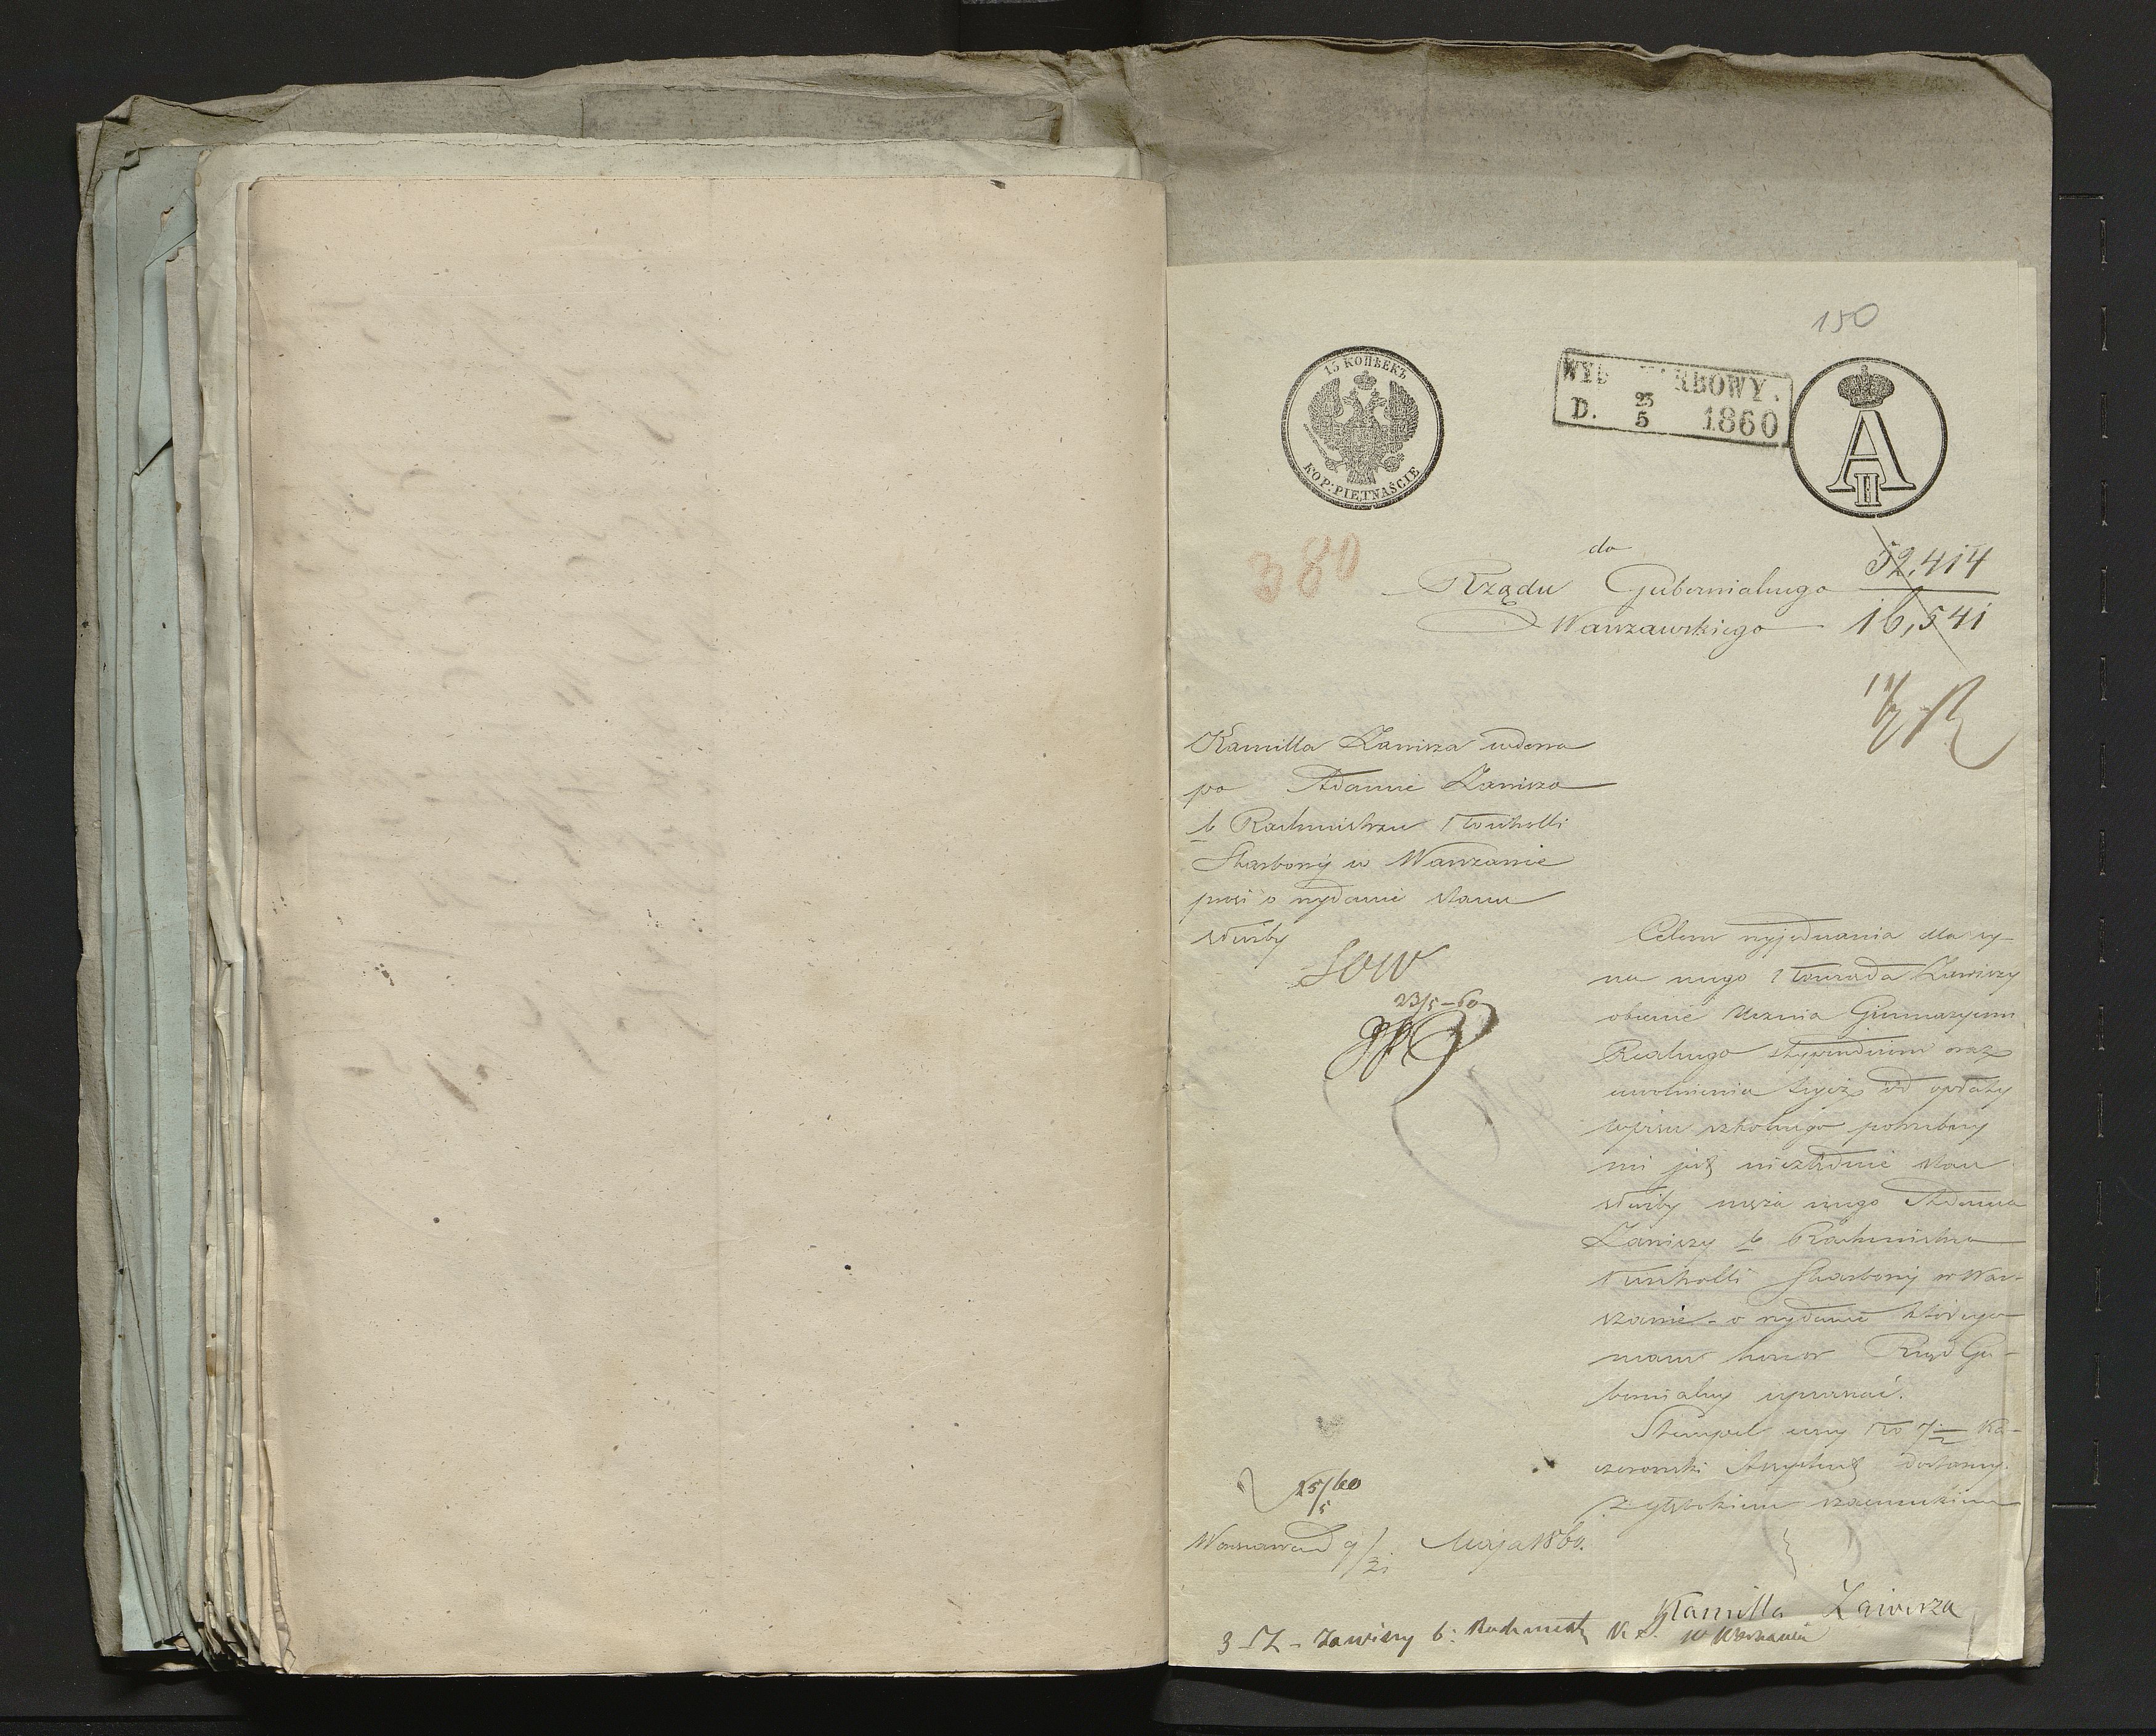 150
15 КОПѢЕКЪ
KOP: PIĘTNAŚCIE
WYD SKARBOWY.
D. 23/5 1860
A II
380
do
Rządu Gubernialnego
Warszawskiego
52,414
16,541
Kamilla Zawisza wdowa
po Adamie Zawisza
b Rachmistrzu Kontrolli
Skarbowej w Warszawie
prosi o wydanie stanu
służby
SOW
23/5-60
Celem wyjednania dla sy-
na mego Konrada Zawiszy
obecnie Ucznia Gimnazyum
Realnego stypendium oraz
uwolnienia tegoż od opłaty
wpisu szkolnego potrzebny
mi jest niezbędnie stan
służby męża mego Adama
Zawiszy b Rachmistrza
Kontrolli Skarbowej w War-
szawie - o wydanie którego
mam honor Rząd Gu-
bernialny upraszać.
Stempel ceny Ko 7½
dołączam
z głębokiem szacunkiem
25/5 60
Warszawa d 9/21 Maja 1860.
Kamilla Zawisza
w Warszawie
3 - Zawiszy b: Rachmistrz K S.